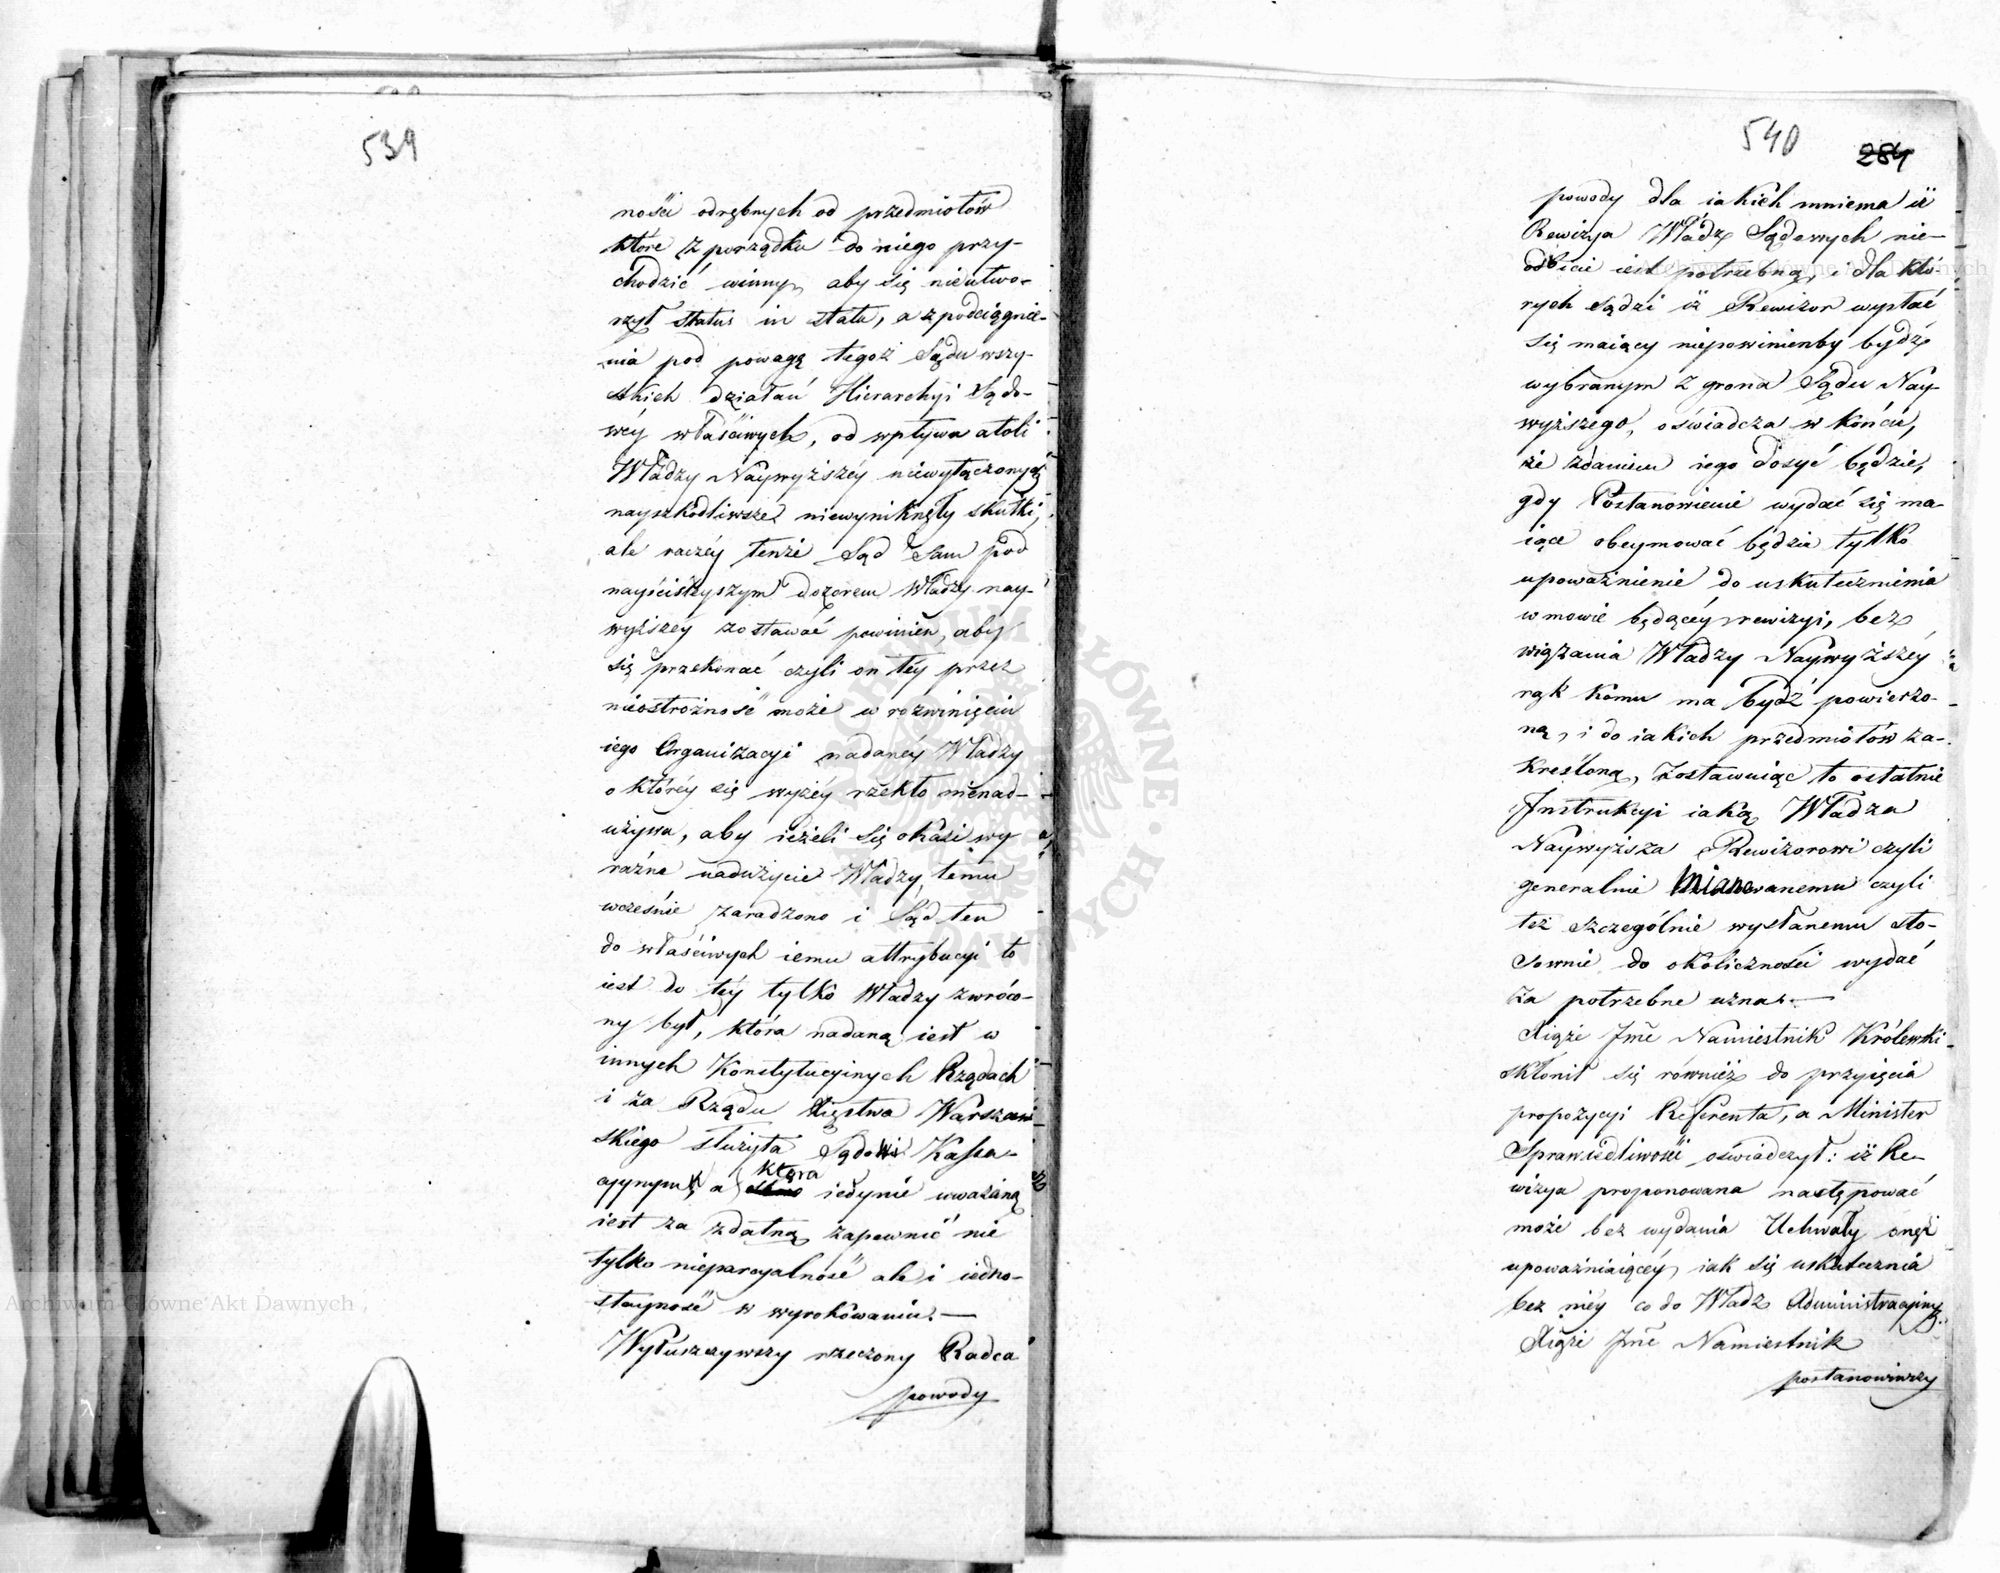 539
ności odrębnych od przedmiotów
które z porządku do niego przy-
chodzić winny, aby się nieutwo-
rzył status in statu, a z podciągnie-
nia pod powagę tegoż Sądu wszy-
stkich działań Hierarchyi Sądo-
wéy właściwych, od wpływu atoli
Władzy Naywyższéy niewyłączonych
nayszkodliwsze niewyniknęły skutki,
ale raczéy tenże Sąd sam pod
nayściśleyszym dozorem Władzy nay-
wyższéy zostawać powinien, aby
się przekonać czyli on téy przez
nieostrożność może w rozwinięciu
iego Organizacyi nadanéy Władzy
o któréy się wyżéy rzekło nienad-
używa, aby ieżeli się okaże wy
raźne nadużycie Władzy, temu
wcześnie zaradzono i Sąd ten
do właściwych iemu attrybucyi to
iest do téy tylko Władzy zwróco-
ny był, która nadaną iest w
innych Konstytucyinych Rządach
i za Rządu Xięstwa Warszaw
skiego służyła Sądowi Kassa-
cyjnymu, a która iedynie uważaną
iest za zdatną zapewnić nie
tylko nieparcyalność ale i iedno-
stayność w wyrokowaniu. —
Wyłuszczywszy rzeczony Radca
powody
540
284
powody dla iakich mniema iż
Rewizya Władz Sądowych nie-
odbicie iest potrzebną, i dla któ-
rych sądzi iż Rewizor wysłać
się maiący niepowinienby bydź
wybranym z grona Sądu Nay-
wyższego, oświadcza w końcu,
że zdaniem iego dosyć będzie,
gdy Postanowienie wydać się ma-
iące obeymować będzie tylko
upoważnienie do uskutecznienia
w mowie będącéy rewizyi, bez
wiązania Władzy Naywyższéy
rąk komu ma bydź powierzo-
ną, i do iakich przedmiotów za-
kreśloną, zostawuiąc to ostatnie
Instrukcyi iaką Władza
Naywyższa Rewizorowi czyli
generalnie mianowanemu czyli
też szczególnie wysłanemu sto-
sownie do okoliczności wydać
za potrzebne uzna. —
Xiąże Jmć Namiestnik Królewski
skłonił się również do przyięcia
propozycyi Referenta, a Minister
Sprawiedliwości oświadczył: iż Re-
wizya proponowana następować
może bez wydania Uchwały onéż
upoważniaiącéy, iak się uskutecznia
bez niéy co do Władz Administracyiny
Xiąże Jmć Namiestnik
postanowiwszy
Archiwum Główne Akt Dawnych